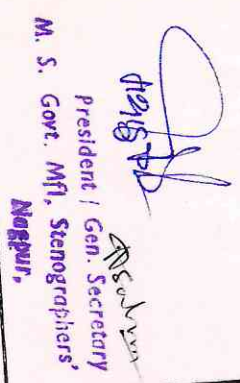 President / Gen. Secretary
M. S. Govt. Mfl, Stenographers'
Nagpur,